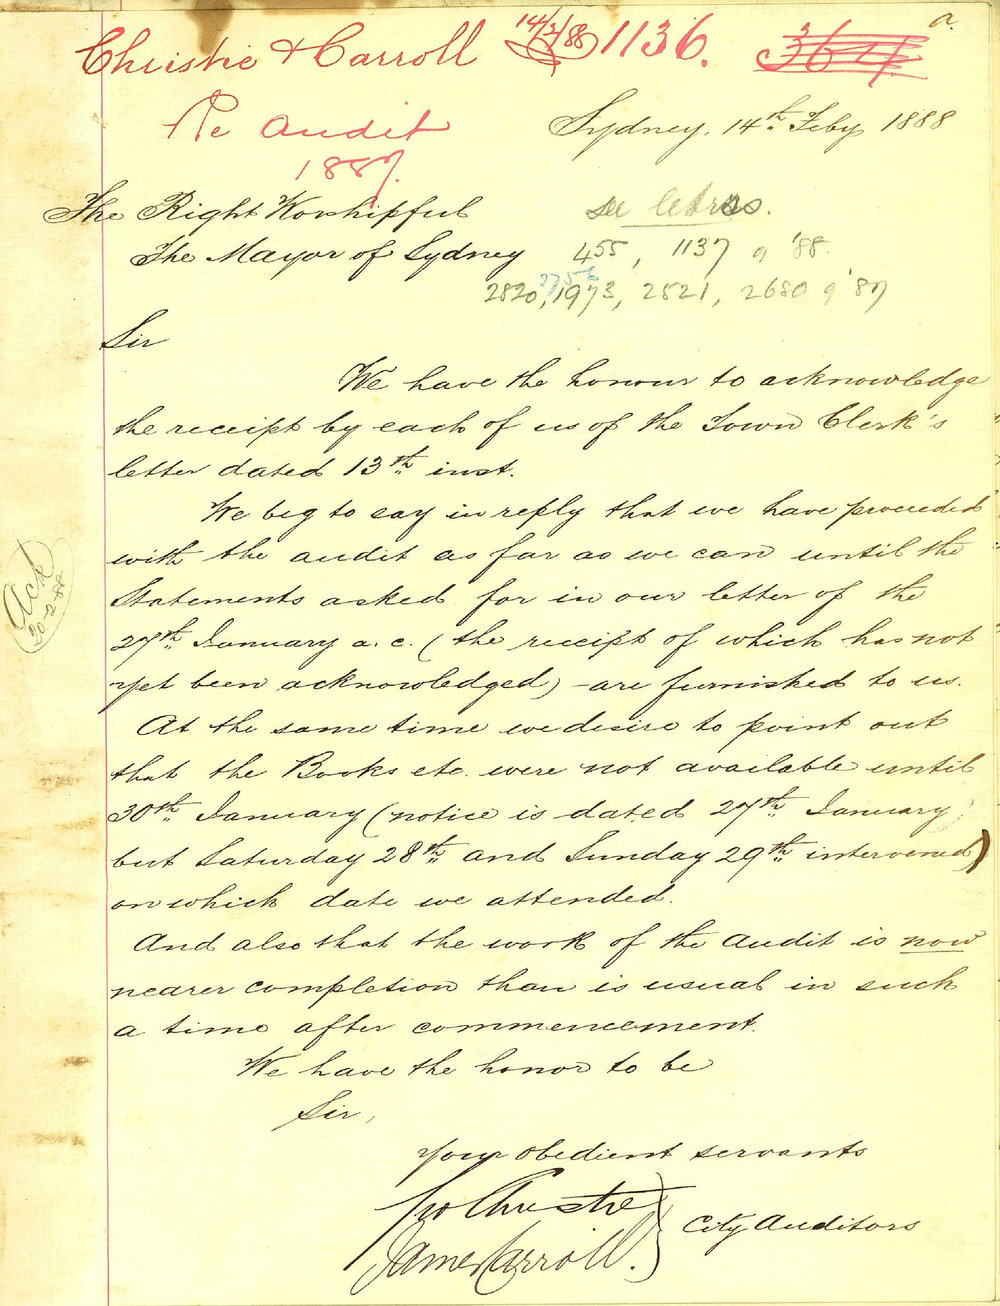 Christie & Carroll 14/2/88 1136.
a.
Re Audit
1887.
Sydney, 14th Feby 1888
The Right Worshipful
The Mayor of Sydney
see letters.
455, 1137 of '88.
2756
2820, 1973, 2821, 2680 of '87
Sir
We have the honour to acknowledge
the receipt by each of us of the Town Clerk's
letter dated 13th inst.
We beg to say in reply that we have proceeded
with the audit as far as we can until the
Statements asked for in our letter of the
27th January a.c. (the receipt of which has not
yet been acknowledged) - are furnished to us.
At the same time we desire to point out
that the Books etc. were not available until
30th January (notice is dated 27th January
but Saturday 28th and Sunday 29th intervened)
on which date we attended.
And also that the work of the Audit is now
nearer completion than is usual in such
a time after commencement.
We have the honor to be
Sir,
Your obedient servants
Jno Christie
James Carroll.
City Auditors
Ack
20-2-88